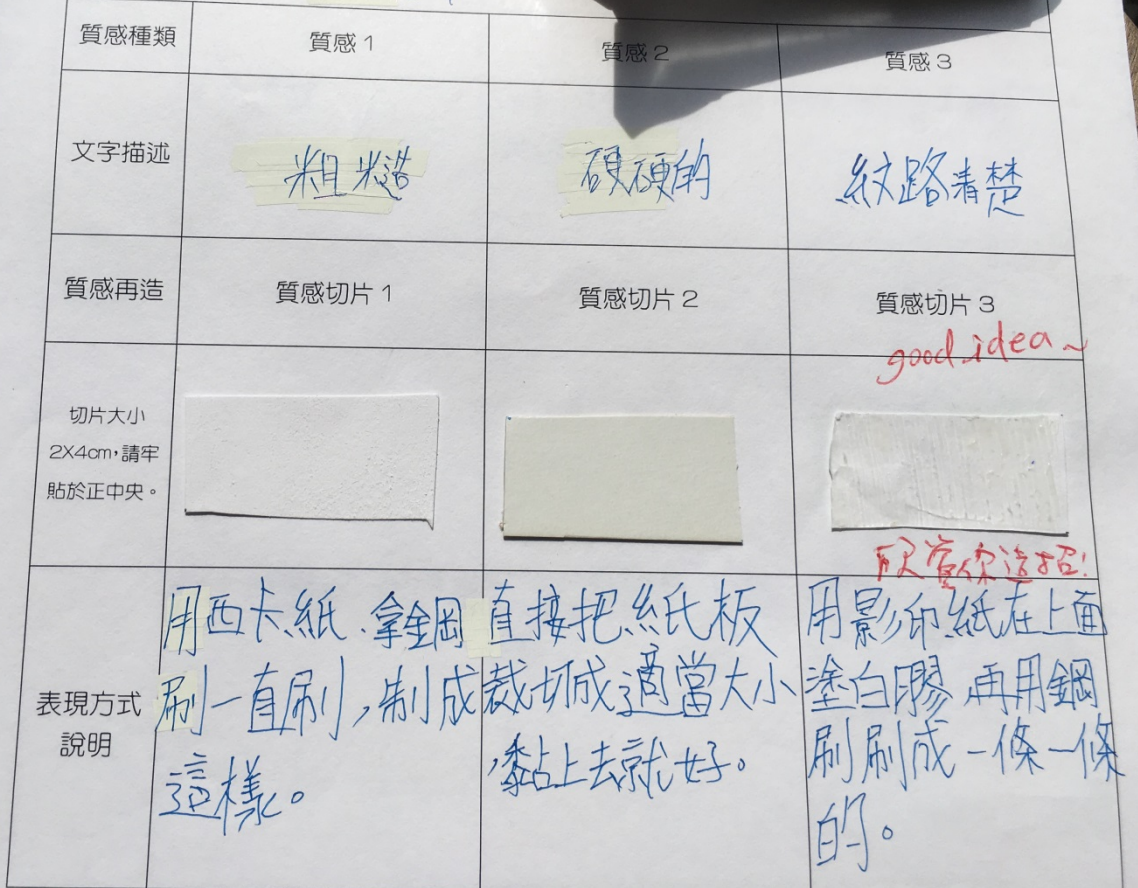 質感種類 質感1 質感2 質感3
文字描述 粗糙 硬硬的 紋路清楚
質感再造 質感切片1 質感切片2 質感切片3
good idea~
切片大小
2X4cm,請牢
貼於正中央。
欣賞你這招!
表現方式
說明
用西卡紙、拿鋼
刷一直刷,制成
這樣。
直接把紙板
裁切成適當大小
,黏上去就好。
用影印紙在上面
塗白膠,再用鋼
刷刷成一條一條
的。